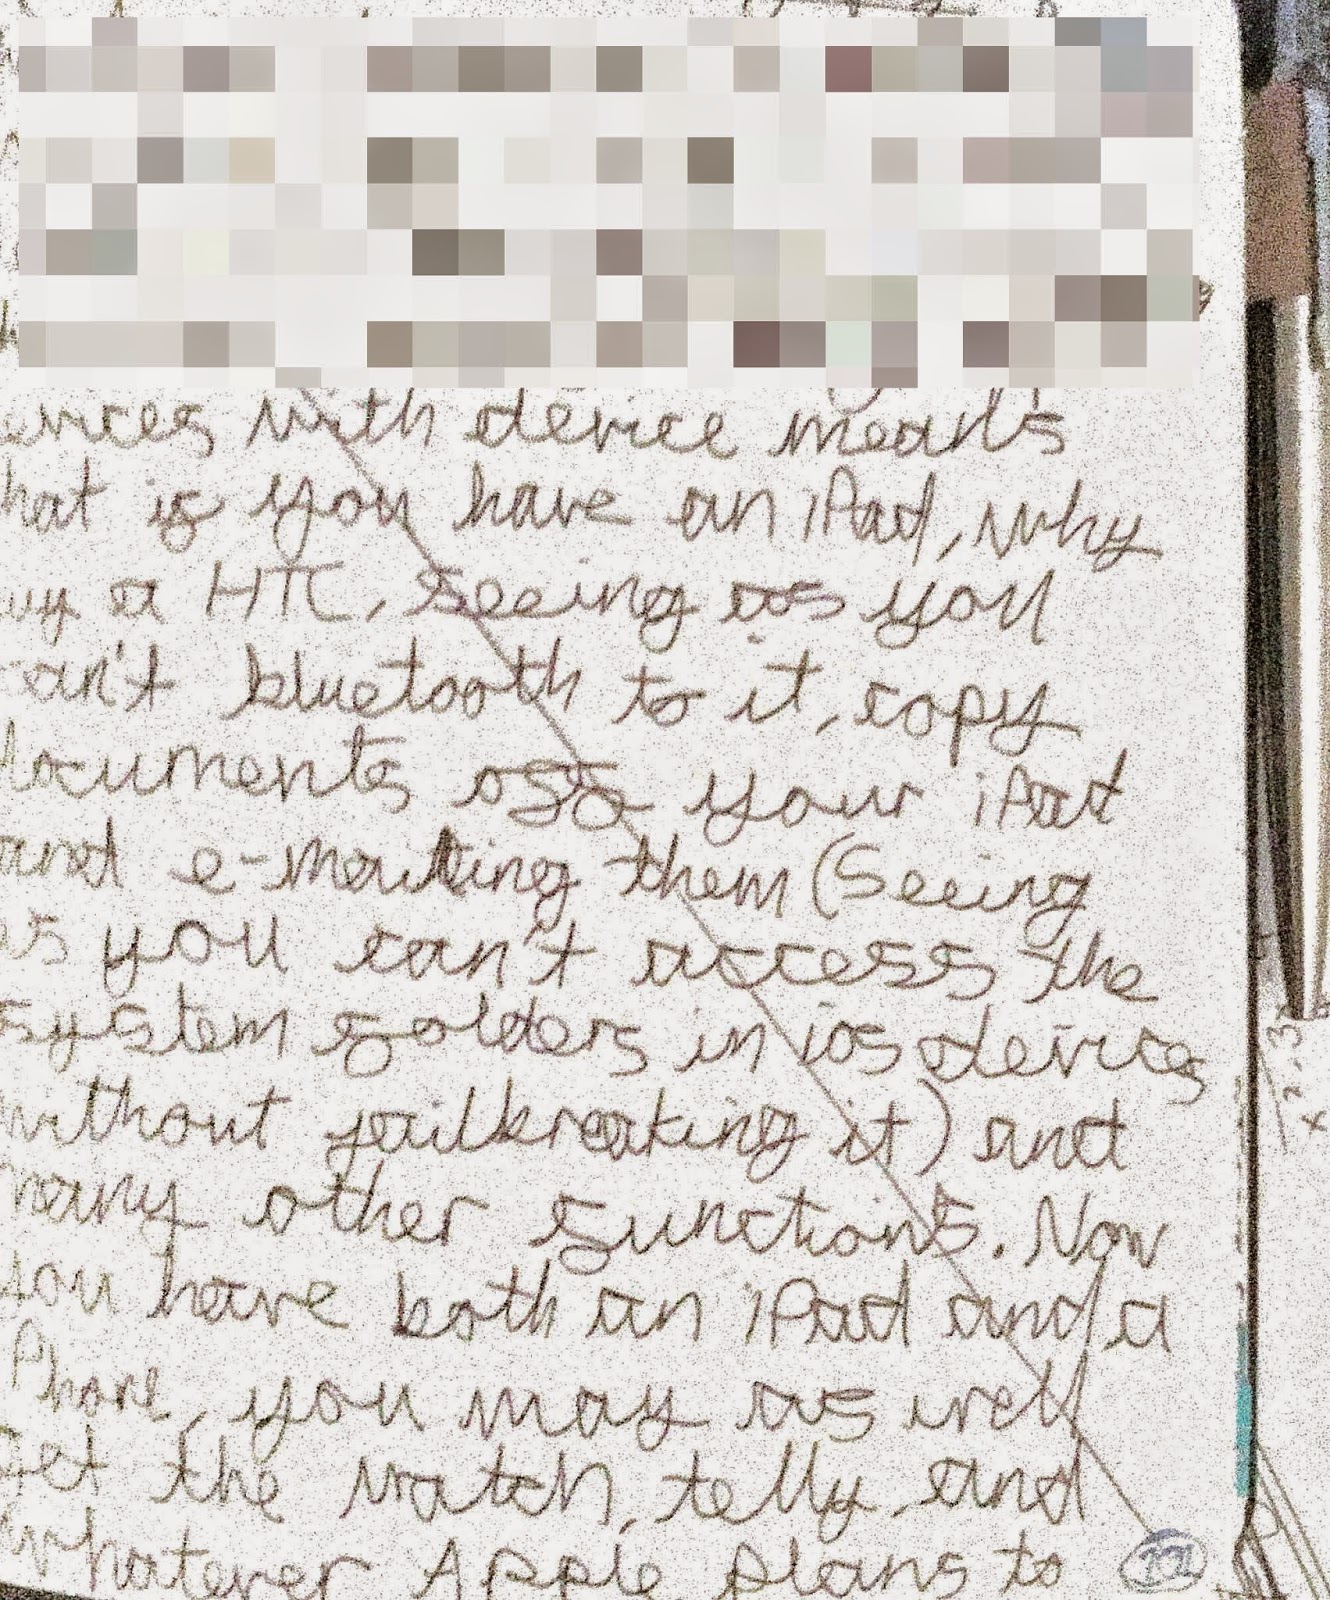 ences with device means
hat if you have an iPad, why
uy a HTC, seeing as you
can't bluetooth to it, copy
documents off your iPad
and e-mailing them (Seeing
as you can't access the
system folders in ios devices
without jailbreaking it) and
many other functions. Now
you have both an iPad and a
iPhone, you may as well
get the watch, telly and
whatever Apple plans to